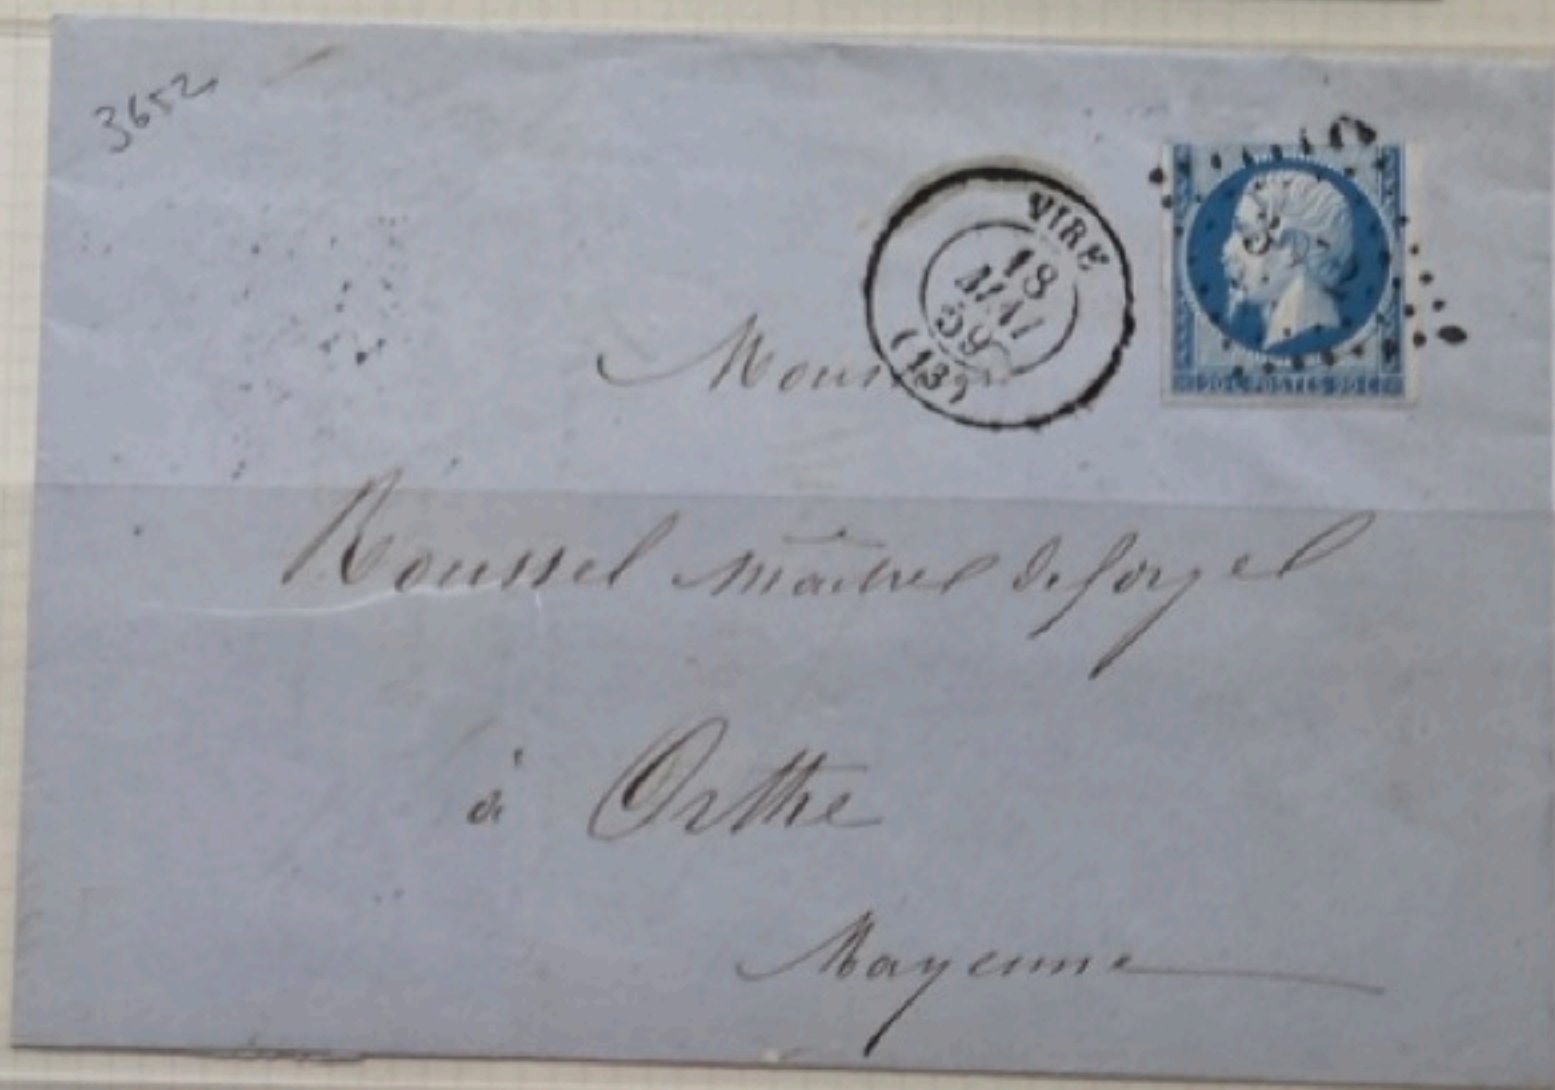 3652
VIRE
18
MAI
59
(13)
20 C. POSTES 20 C.
Roussel Maître de forges
à Orthe
Mayenne